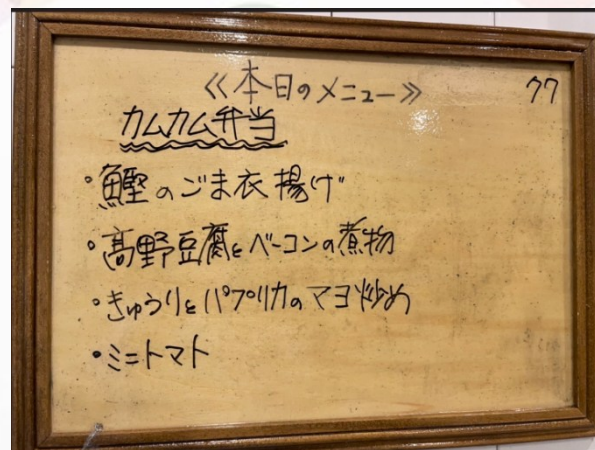 ≪本日のメニュー≫ 77
カムカム弁当
・鰹のごま衣揚げ
・高野豆腐とベーコンの煮物
・きゅうりとパプリカのマヨ炒め
・ミニトマト